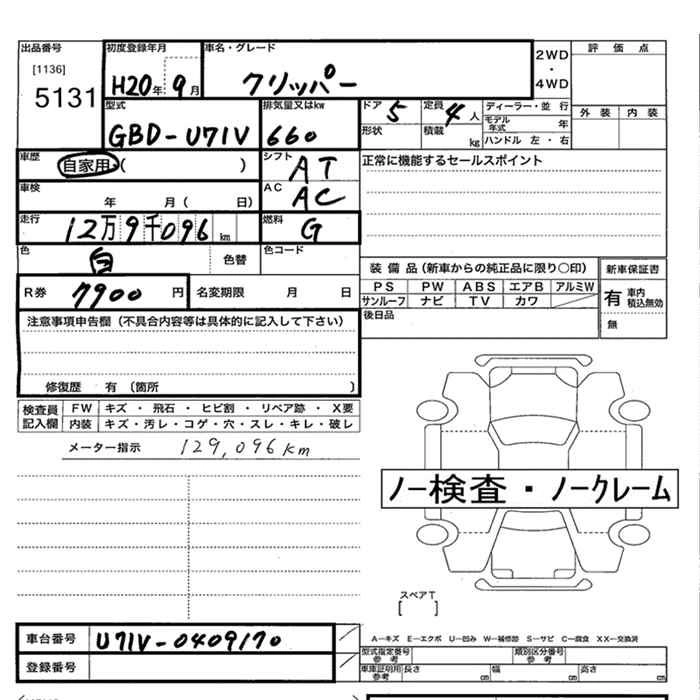 出品番号 初度登録年月 車名・グレード 2WD・4WD 評価点
[1136]
5131 H20年 9月 クリッパー
型式 排気量又はkw ドア 5 定員 4人 ディーラー・並 行 外装 内装
GBD-U71V 660 形状 積載 kg モデル年式 年
ハンドル 左・右
車歴 自家用( ) シフト AT 正常に機能するセールスポイント
車検 年 月( 日) AC AC
走行 12万9千096km 燃料 G
色 白 色替 色コード
装備品(新車からの純正品に限り○印) 新車保証書
R券 7900円 名変期限 月 日 PS PW ABS エアB アルミW 有 車内積込無効
サンルーフ ナビ TV カワ
注意事項申告欄(不具合内容等は具体的に記入して下さい) 後日品 無
修復歴 有(箇所 )
検査員記入欄 FW キズ・飛石・ヒビ割・リペア跡・X要
内装 キズ・汚レ・コゲ・穴・スレ・キレ・破レ
メーター指示 129,096km
ノー検査・ノークレーム
スペアT
[ ]
車台番号 U71V-0409170
A-キズ E-エクボ U-凹み W-補修跡 S-サビ C-腐食 XX-交換済
型式指定番号 参考 類別区分番号 参考
登録番号 車庫証明用 参考 長さ cm 幅 cm 高さ cm